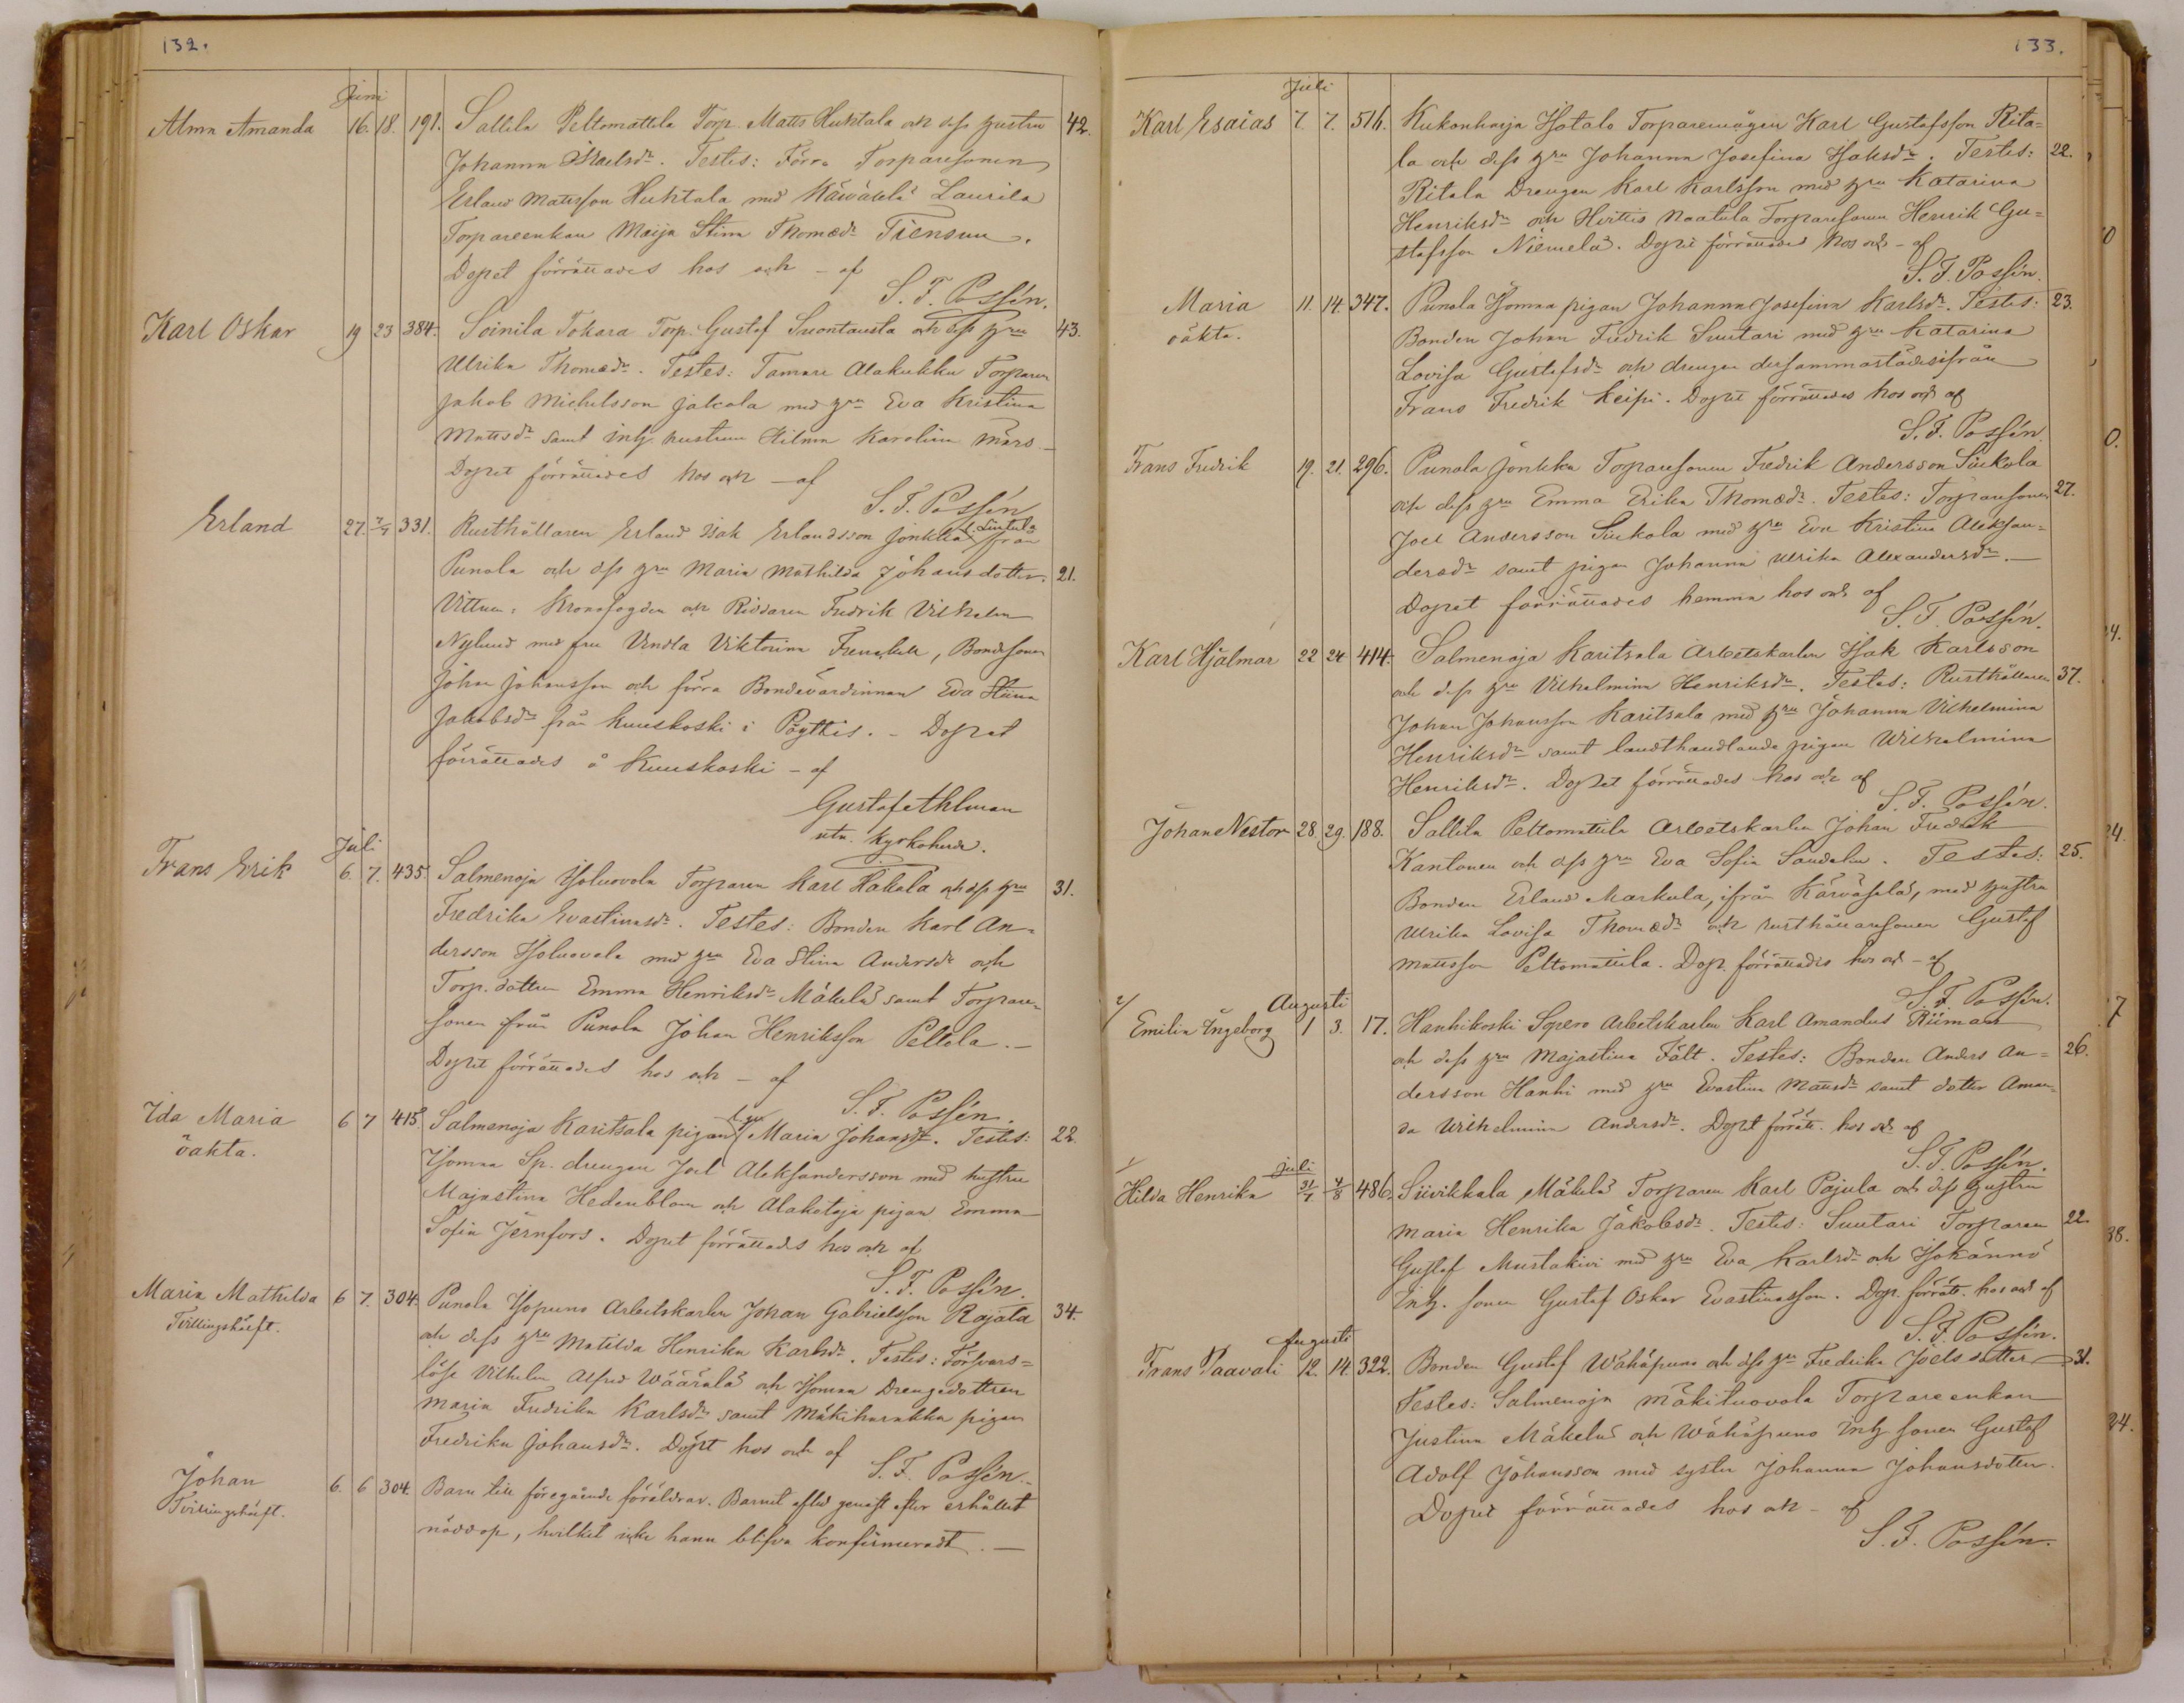 132.
Juni
Alma Amanda 16. 18. 191. Sallila Peltomattila Torp. Matts Huhtala och dess hustru 42.
Johanna Isaelsdr. Testes: Förra Torparesonen
Erland Mattsson Huhtala med Käwäselä Laurila
Torpareenkan Maija Stina Thomædr Tiensuu.
Dopet förrättades hos och - af
S. F. Possén.
Karl Oskar 19 23 384. Soinila Tokara Torp. Gustaf Suontausta och dess hru 43.
Ulrika Thomædr. Testes: Tamare Alakukku Torparen
Jakob Michelsson Jakola med hru Eva Kristina
Mattsdr samt inh. hustrun Hilma Karolina Mårs -
Dopet förrättades hos och - af
S. F. Possén
Erland 27. 7/7 331. Rusthållaren Erland Isak Erlandsson Jonkka Liutula från
Punola och dess hru Maria Mathilda Johansdotter. 21.
Vittnen: Kronofogden och Riddaren Fredrik Vilhelm
Nylund med fru Vendla Viktorina, Bondesonen
Johan Johansson och förra Bondevärdinnan Eva Stina
Jakobsdr från Kuuskoski i Pöyttis. - Dopet
förrättades å Kuuskoski - af
Gustaf Ahlman
utn. kyrkoherde.
Juli
Frans Erik 6. 7. 435. Salmenoja Isoluovola Torparen Karl Hakala och dess hru 31.
Fredrika Evastinasdr. Testes: Bonden Karl An-
dersson Isoluovola med hru Eva Stina Andersdr och
Torp. dottren Emma Henriksdr Mäkelä samt Torpare-
sonen från Punola Johan Henriksson Pellola. -
Dopet förrättades hos och - af
S. F. Possén.
Ida Maria 6 7 415 Salmenoja Karitsala pigan Maria Johansdr. Testes: 22.
öäkta.
Isomaa Sp. drengen Joel Aleksandersson med hustru
Majastina Hedenblom och Alaketoja pigan Emma
Sofia Jernfors. Dopet förrättades hos och af
S. F. Possén.
Maria Mathilda 6 7. 304. Punola Isopuno Arbetskarlen Johan Gabrielsson Rajala 34.
Tvillingshälft.
och dess hru Matilda Henrika Karlsdr. Testes: Försvars=
löse Vilhelm Alfred Wäärälä och Isomaa Drengedottren
Maria Fredrika Karlsdr samt Mäkiharakka pigan
Fredrika Johansdr. Döpt hos och af
S. F. Possén.
Johan 6. 6 304. Barn till föregående föräldrar. Barnet afled genast efter erhållet
Tvillingshälft.
nöddop, hvilket icke hann blifva konfirmeradt. -
133.
Juli
Karl Esaias 7. 7. 516. Kukonharja Isotalo Torparemågen Karl Gustafsson Rita=
la och dess hru Johanna Josefina Isaksdr. Testes: 22.
Ritala Drengen Karl Karlsson med hru Katarina
Henriksdr och Hvittis Naatula Torparesonen Henrik Gu=
stafsson Niemelä. Dopet förrättades hos och - af
S. F. Possén.
Maria 11. 14. 347. Punola Isomaa pigan Johanna Josefina Karlsdr. Testes: 23.
oäkta.
Bonden Johan Fredrik Suutari med hru Katarina
Lovisa Gustafsdr och drengen dersammastädesifrån
Frans Fredrik Keipi. Dopet förrättades hos och af
S. F. Possén.
Frans Fredrik 19. 21. 296. Punola Jonkka Torparesonen Fredrik Andersson Siukola
och dess hru Emma Erika Thomædr. Testes: Torparesonen 27.
Joel Andersson Siukola med hru Eva Kristina Aleksan=
dersdr samt pigan Johanna Ulrika Alexandersdr. -
Dopet förrättades hemma hos och af
S. F. Possén.
Karl Hjalmar 22 24 414. Salmenoja Karitsala Arbetskarlen Isak Karlsson
och dess hru Vilhelmina Henriksdr. Testes: Rusthållaren 37.
Johan Johansson Karitsala med hru Johanna Vilhelmina
Henriksdr samt landthandlande pigan Wilhelmina
Henriksdr. Dopet förrättades hos och af
S. F. Possén.
Johan Nestor 28. 29. 188. Sallila Peltomattila Arbetskarlen Johan Fredrik
Kantonen och dess hru Eva Sofia Sandelin. Testes: 25.
Bonden Erland Markula, ifrån Kärväselä, med hustru
Ulrika Lovisa Thomædr och rusthållaresonen Gustaf
Mattsson Peltomattila. Dop. förrättades hos och - af
S. F. Possén.
2/
Augusti
Emilia Ingeborg 1 3. 17. Hanhikoski Sepero Arbetskarlen Karl Amandus Riimaa
och dess hru Majastina Fält. Testes: Bonden Anders An= 26.
dersson Hanhi med hru Evastina Mattsdr samt dotter Aman=
da Wilhelmina Andersdr. Dopet förrätt. hos och af
S. F. Possén.
1/
Juli
Hilda Henrika 31/7 4/8 486. Siivikkala Mäkelä Torparen Karl Pajula och dess hustru
Maria Henrika Jakobsdr. Testes: Suutari Torparen 22.
Gustaf Mustakivi med hru Eva Karlsdr och Isokännö
Inh. sonen Gustaf Oskar Evastinasson. Dop. förrätt. hos och af
S. F. Possén.
Augusti
Frans Paavali 12. 14. 322. Bonden Gustaf Wähäpuno och dess hru Fredrika Joelsdotter 31.
Testes: Salmenoja Mäkiluovola Torpareenkan
Justina Mäkelä och Wähäpuno Inh. sonen Gustaf
Adolf Johansson med syster Johanna Johansdotter.
Dopet förrättades hos och - af
S. F. Possén.